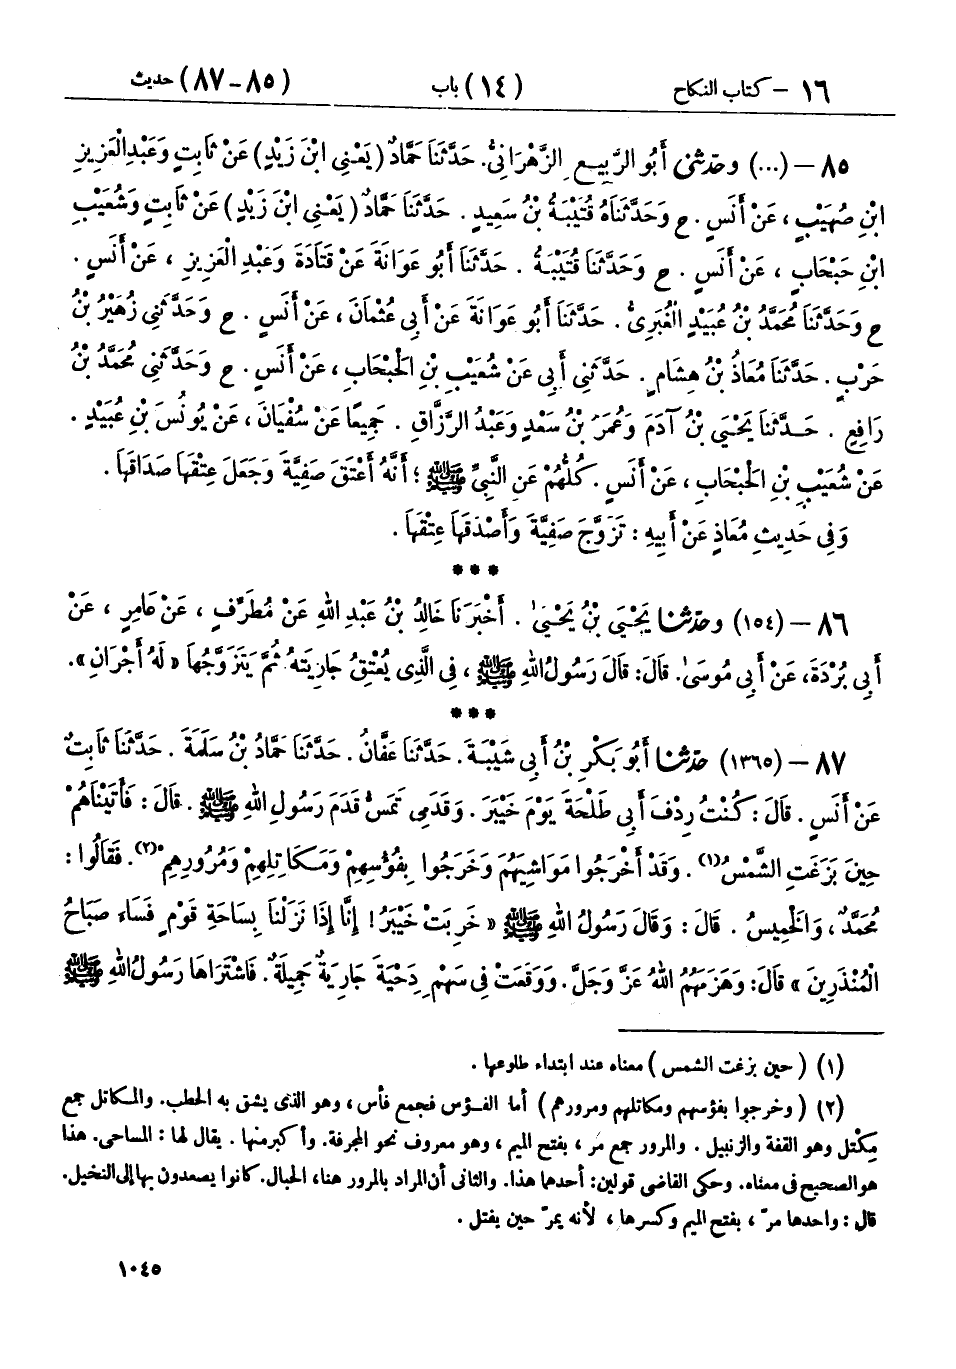 ١٦ – كتاب النكاح (١٤) باب (٨٥–٨٧) حديث
٨٥ – (...) وحَدَّثَنِي أَبُو الرَّبِيعِ الزَّهْرَانِيُّ. حَدَّثَنَا حَمَّادٌ (يَعْنِي ابْنَ زَيْدٍ) عَنْ ثَابِتٍ وَعَبْدِالْعَزِيزِ
ابْنِ صُهَيْبٍ، عَنْ أَنَسٍ. ح وَحَدَّثَنَاهُ قُتَيْبَةُ بْنُ سَعِيدٍ. حَدَّثَنَا حَمَّادٌ (يَعْنِي ابْنَ زَيْدٍ) عَنْ ثَابِتٍ وَشُعَيْبِ
ابْنِ حَبْحَابٍ، عَنْ أَنَسٍ. ح وَحَدَّثَنَا قُتَيْبَةُ. حَدَّثَنَا أَبُو عَوَانَةَ عَنْ قَتَادَةَ وَعَبْدِ الْعَزِيزِ، عَنْ أَنَسٍ.
ح وَحَدَّثَنَا مُحَمَّدُ بْنُ عُبَيْدٍ الْغُبَرِيُّ. حَدَّثَنَا أَبُو عَوَانَةَ عَنْ أَبِي عُثْمَانَ، عَنْ أَنَسٍ. ح وَحَدَّثَنِي زُهَيْرُ بْنُ
حَرْبٍ. حَدَّثَنَا مُعَاذُ بْنُ هِشَامٍ. حَدَّثَنِي أَبِي عَنْ شُعَيْبِ بْنِ الْحَبْحَابِ، عَنْ أَنَسٍ. ح وَحَدَّثَنِي مُحَمَّدُ بْنُ
رَافِعٍ. حَدَّثَنَا يَحْيَى بْنُ آدَمَ وَعُمَرُ بْنُ سَعْدٍ وَعَبْدُ الرَّزَّاقِ. جَمِيعًا عَنْ سُفْيَانَ، عَنْ يُونُسَ بْنِ عُبَيْدٍ.
عَنْ شُعَيْبِ بْنِ الْحَبْحَابِ، عَنْ أَنَسٍ. كُلُّهُمْ عَنِ النَّبِيِّ ﷺ؛ أَنَّهُ أَعْتَقَ صَفِيَّةَ وَجَعَلَ عِتْقَهَا صَدَاقَهَا.
وَفِي حَدِيثِ مُعَاذٍ عَنْ أَبِيهِ: تَزَوَّجَ صَفِيَّةَ وَأَصْدَقَهَا عِتْقَهَا.
***
٨٦ – (١٥٤) وحَدَّثَنَا يَحْيَى بْنُ يَحْيَىٰ. أَخْبَرَنَا خَالِدُ بْنُ عَبْدِ اللهِ عَنْ مُطَرِّفٍ، عَنْ عَامِرٍ، عَنْ
أَبِي بُرْدَةَ، عَنْ أَبِي مُوسَىٰ. قَالَ: قَالَ رَسُولُ اللهِ ﷺ، فِي الَّذِي يُعْتِقُ جَارِيَتَهُ ثُمَّ يَتَزَوَّجُهَا «لَهُ أَجْرَانِ».
***
٨٧ – (١٣٦٥) حَدَّثَنَا أَبُو بَكْرِ بْنُ أَبِي شَيْبَةَ. حَدَّثَنَا عَفَّانُ. حَدَّثَنَا حَمَّادُ بْنُ سَلَمَةَ. حَدَّثَنَا ثَابِتٌ
عَنْ أَنَسٍ. قَالَ: كُنْتُ رِدْفَ أَبِي طَلْحَةَ يَوْمَ خَيْبَرَ. وَقَدَمِي تَمَسُّ قَدَمَ رَسُولِ اللهِ ﷺ. قَالَ: فَأَتَيْنَاهُمْ
حِينَ بَزَغَتِ الشَّمْسُ(١). وَقَدْ أَخْرَجُوا مَوَاشِيَهُمْ وَخَرَجُوا بِفُؤُسِهِمْ وَمَكَاتِلِهِمْ وَمُرُورِهِمْ(٢). فَقَالُوا:
مُحَمَّدٌ، وَالْخَمِيسُ. قَالَ: وَقَالَ رَسُولُ اللهِ ﷺ «خَرِبَتْ خَيْبَرُ! إِنَّا إِذَا نَزَلْنَا بِسَاحَةِ قَوْمٍ فَسَاءَ صَبَاحُ
الْمُنْذَرِينَ» قَالَ: وَهَزَمَهُمُ اللهُ عَزَّ وَجَلَّ. وَوَقَعَتْ فِي سَهْمِ دِحْيَةَ جَارِيَةٌ جَمِيلَةٌ. فَاشْتَرَاهَا رَسُولُ اللهِ ﷺ
(١) (حين بزغت الشمس) معناه عند ابتداء طلوعها.
(٢) (وخرجوا بفؤسهم ومكاتلهم ومرورهم) أما الفؤس فجمع فأس، وهو الذى يشق به الحطب. والمكاتل جمع
مِكْتل وهو القفة والزنبيل. والمرور جمع مَر، بفتح الميم، وهو معروف نحو المجرفة. وأكبر منها. يقال لها: المساحى. هذا
هو الصحيح فى معناه. وحكى القاضى قولين: أحدهما هذا. والثانى أن المراد بالمرور هنا، الحبال. كانوا يصعدون بها إلى النخيل.
قال: واحدها مرّ، بفتح الميم وكسرها، لأنه يمرّ حين يفتل.
١٠٤٥